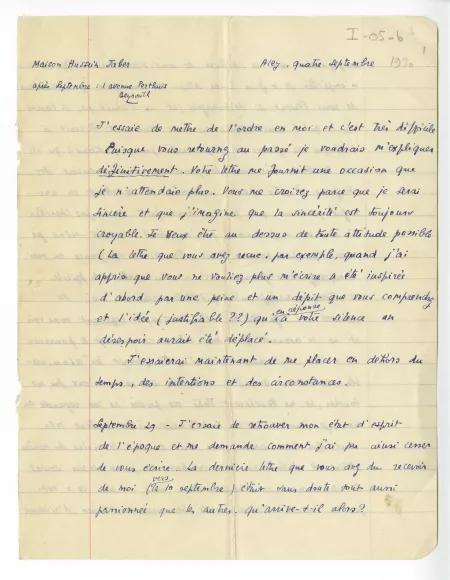 I-05-6
1
Maison Hussein Jaber
Aley. quatre septembre 1930
après Septembre : 1 avenue Perthuis
Beyrouth
J'essaie de mettre de l'ordre en moi et c'est très difficile
Puisque vous retournez au passé je voudrais m'expliquer
définitivement. Votre lettre me fournit une occasion que
je n'attendais plus. Vous me croirez parce que je serai
sincère et que j'imagine que la sincérité est toujours
croyable. Je veux être au dessus de toute attitude possible
(La lettre que vous avez reçue, par exemple, quand j'ai
appris que vous ne vouliez plus m'écrire a été inspirée
d'abord par une peine et un dépit que vous comprendrez
et l'idée (justifiable ??) qu'en réponse à votre silence un
désespoir aurait été déplacé.
J'essaierai maintenant de me placer en dehors du
temps, des intentions et des circonstances.
Septembre 29 - J'essaie de retrouver mon état d'esprit
de l'époque et me demande comment j'ai pu ainsi cesser
de vous écrire. La dernière lettre que vous avez du recevoir
de moi (vers le 10 septembre) était sans doute tout aussi
passionnée que les autres. qu'arrive-t-il alors?